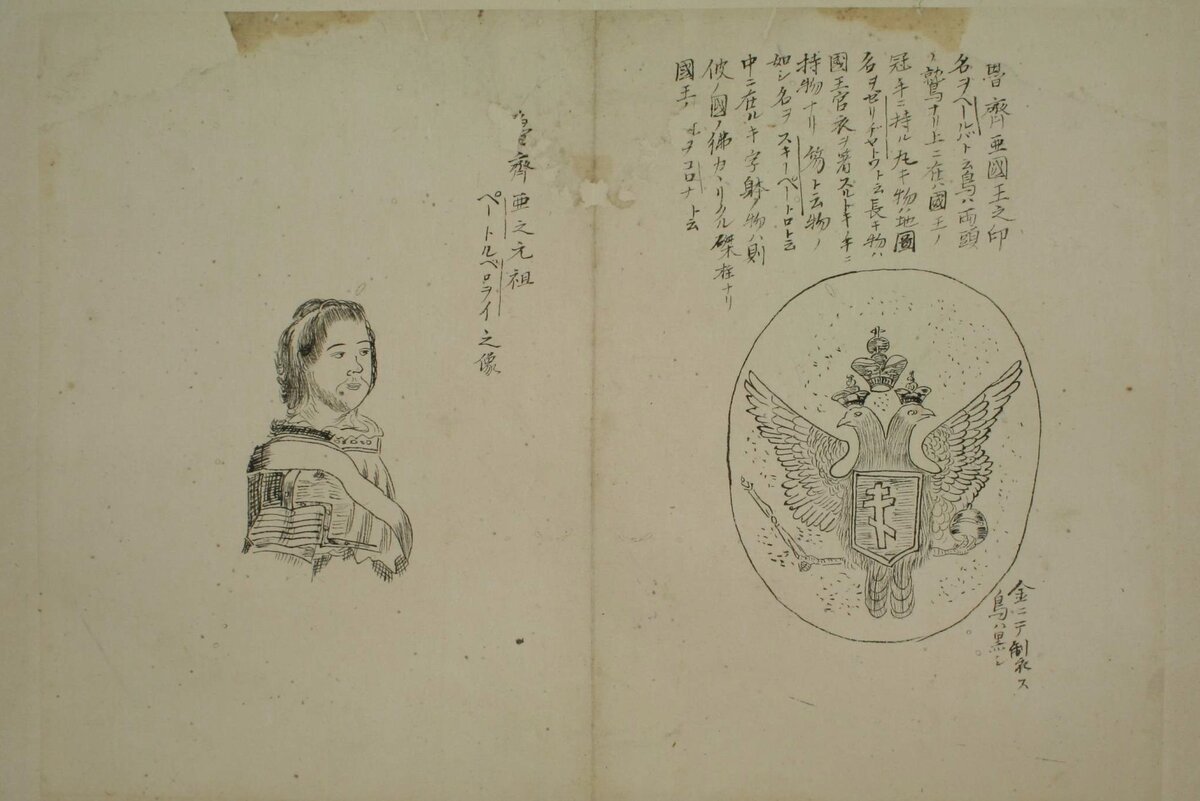 魯齊亜國王之印
名ヲヘールバト云鳥ハ両頭
ノ鷲ナリ上ニ在ハ國王ノ
冠手ニ持ル丸キ物ハ地圖
名ヲゼリヂヤトワト云長キ物ハ
國王官衣ヲ著スルトキ手ニ
持物ナリ笏ト云物ノ
如シ名ヲスキーペートロト云
中ニ在ルキ字躰ノ物ハ則
彼ノ國ノ佛カヽリタル磔柱ナリ
國王ノ ヲコロナト云
金ニテ制衣ス
鳥ハ黒シ
魯齊亜之元祖
ペートルベロライ之像